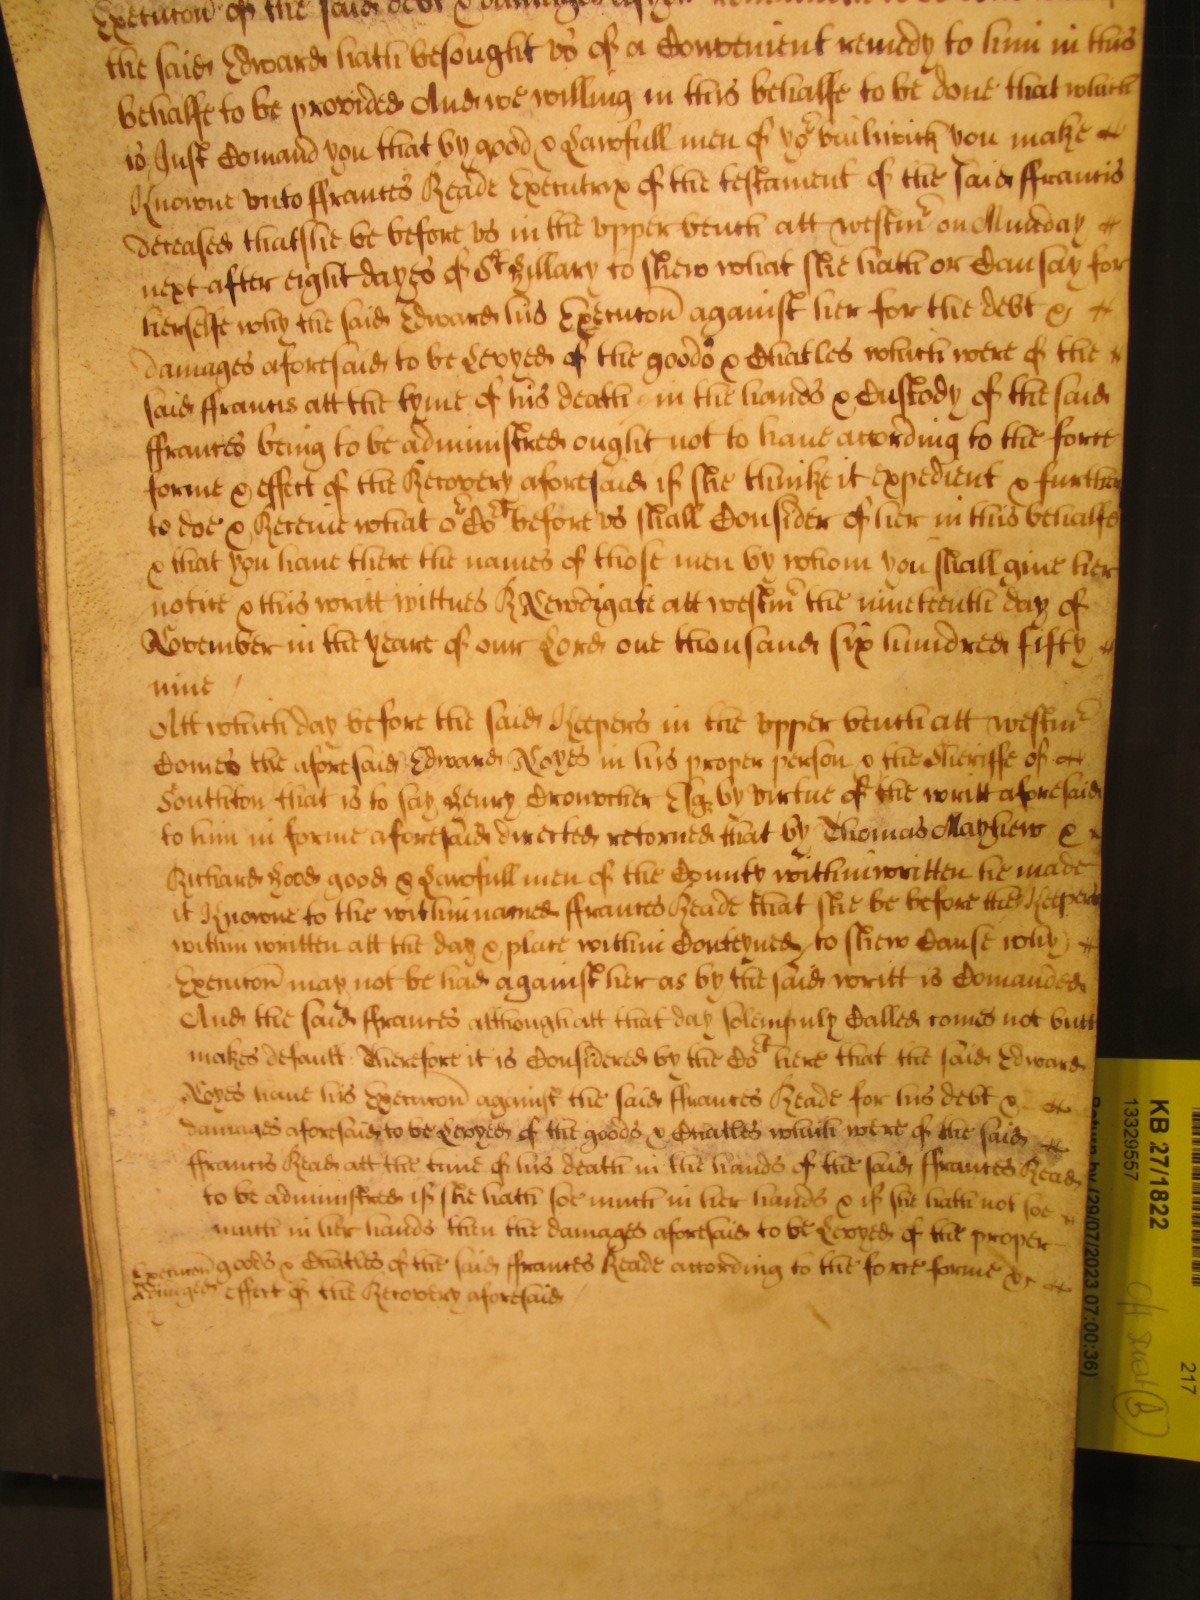 Execucon of the said debt & damages
the said Edward hath besought vs of a Convenient remedy to him in this
behalfe to be provided And we willing in this behalfe to be done that which
is Just Comand you that by good & Lawfull men of yor bailiwick you make
Knowne vnto ffrances Reade Executrix of the testament of the said ffrancis
deceased that she be before vs in the vpper bench att westmr on Munday
next after eight dayes of St Hillary to shew what she hath or Can say for
herselfe why the said Edward his Execucon against her for the debt &
damages aforesaid to be Levyed of the goods & Chatles which were of the
said ffrancis att the tyme of his death in the hands & Custody of the said
ffrances being to be administred ought not to haue according to the force
forme & effect of the Recovery aforesaid if she thinke it expedient & further
to doe & Receiue what or Cot before vs shall Consider of her in this behalfe
& that you haue there the names of those men by whom you shall giue her
notice & this writt wittnes R Newdigate att westmr the nineteenth day of
November in the yeare of our Lord one thousand six hundred fifty
nine
Att which day before the said Keepers in the vpper bench att westmr
Comes the aforesaid Edward Noyes in his proper person & the Sheriffe of
Southton that is to say Henry Crowcher Esqr by virtue of the writt aforesaid
to him in forme aforesaid directed retorned that by Thomas Mayhew &
Richard Hood good & Lawfull men of the County within written he made
it Knowne to the within named ffrances Reade that she be before the Keepers
within written att the day & place within Conteyned to shew Cause why
Execucon may not be had against her as by the said writt is Comanded
And the said ffrances although att that day solempnly Called comes not butt
makes default Therefore it is Considered by the Cot here that the said Edward
Noyes haue his Execucon against the said ffrances Reade for his debt &
damages aforesaid to be Levyed of the goods & Chatles which were of the said
ffrancis Read att the time of his death in the hands of the said ffrances Read
to be administred if she hath soe much in her hands & if she hath not soe
much in her hands then the damages aforesaid to be Levyed of the proper
Execucon goods & Chatles of the said ffrances Reade according to the force forme &
Adiudged effect of the Recovery aforesaid
KB 27/1822
13329557
(29/07/2023 07:00:36)
217